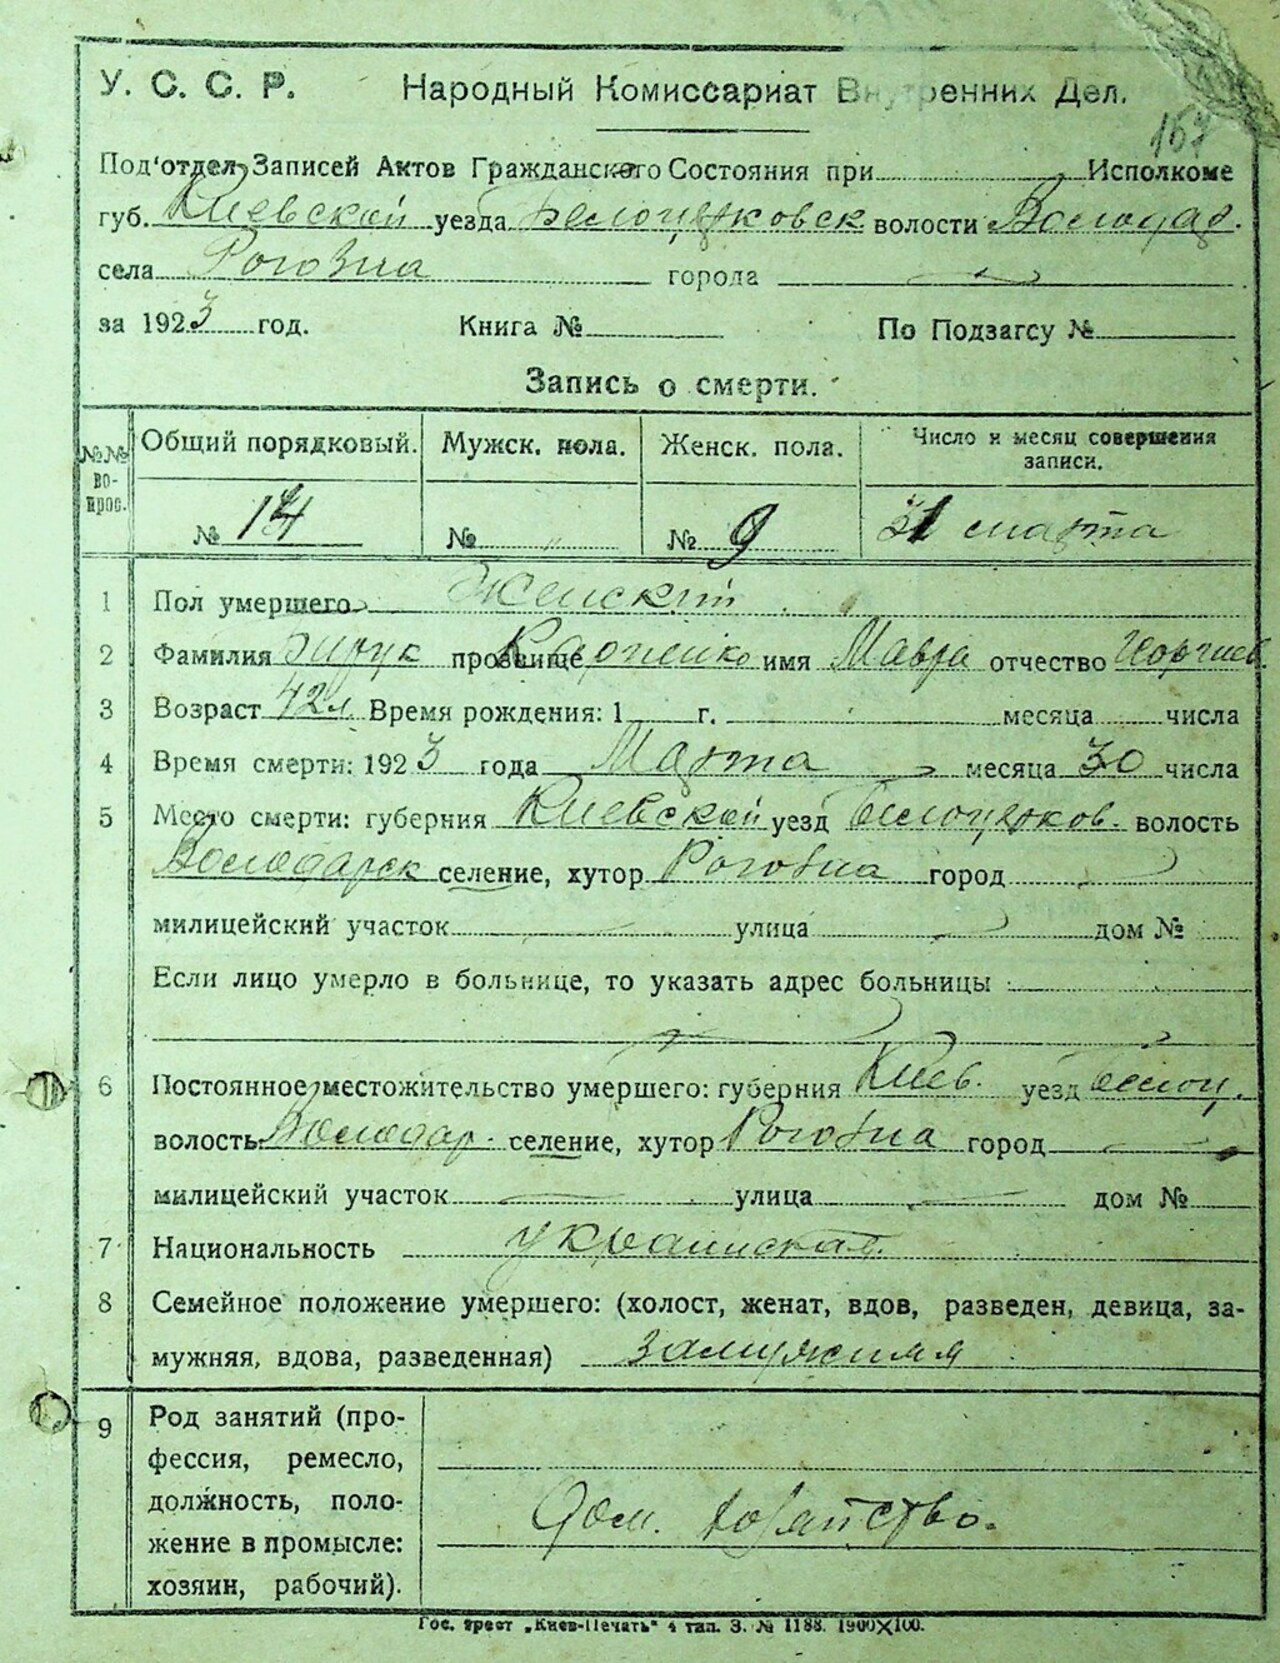 У. С. С. Р. Народный Комиссариат Внутренних Дел.
167
Под'отдел Записей Актов Гражданского Состояния при Исполкоме
губ. Киевской уезда Белоцерковск волости Володар.
села Роговна города
за 1923 год. Книга № По Подзагсу №
Запись о смерти.
№№ во-прос. Общий порядковый. Мужск. пола. Женск. пола. Число и месяц совершения записи.
№ 14 № " № 9 31 марта
1 Пол умершего Женский
2 Фамилия прозвище Карпенко имя Мавра отчество Георгиев
3 Возраст 42 л. Время рождения: 1 г. месяца числа
4 Время смерти: 1923 года Марта месяца 30 числа
5 Место смерти: губерния Киевской уезд Белоцерков. волость
Володарск селение, хутор Роговна город
милицейский участок улица дом №
Если лицо умерло в больнице, то указать адрес больницы
6 Постоянное местожительство умершего: губерния Киев. уезд Белоц.
волость Володар. селение, хутор Роговна город
милицейский участок улица дом №
7 Национальность украинская.
8 Семейное положение умершего: (холост, женат, вдов, разведен, девица, за-
мужняя, вдова, разведенная) замужняя
9 Род занятий (про-
фессия, ремесло,
должность, поло-
жение в промысле:
хозяин, рабочий).
Дом. хозяйство.
Гос. трест „Киев-Печать“ 4 тип. З. № 1188. 1900×100.